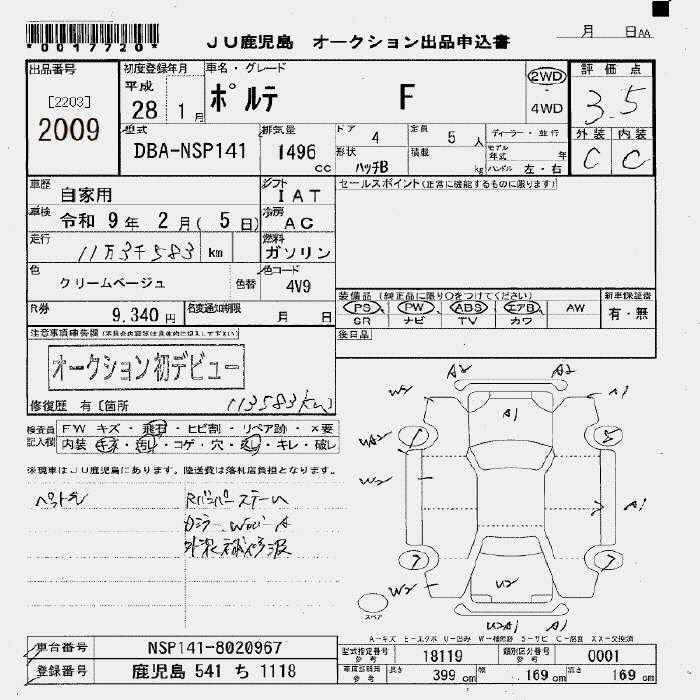 *0017720*
JU鹿児島 オークション出品申込書
月 日AA
出品番号
[2203]
2009
初度登録年月
平成
28 1月
車名・グレード
ポルテ F
2WD
4WD
評価点
3.5
外装 内装
C C
型式
DBA-NSP141
排気量
1496 cc
ドア 4
定員 5 人
形状 ハッチB
積載 kg
ディーラー・並行
モデル年式 年
ハンドル 左・右
車歴 自家用
シフト IAT
セールスポイント(正常に機能するものに限ります)
車検 令和 9年 2月( 5日)
冷房 AC
走行 11万3千583 km
燃料 ガソリン
色 クリームベージュ 色替
色コード 4V9
装備品(純正品に限り○をつけてください)
PS PW ABS エアB AW
SR ナビ TV カワ
新車保証書
有・無
R券 9,340円
名変通知期限 月 日
後日品
注意事項申告欄(不具合内容等は具体的に記入して下さい)
オークション初デビュー
修復歴 有〔箇所 113583km
検査員記入欄
FW キズ・飛石・ヒビ割・リペア跡・×要
内装 キズ・汚れ・コゲ・穴・・キレ・破レ
※現車はJU鹿児島にあります。陸送費は落札店負担となります。
A2 A2
W2 A1
A1
UA2
W2
A1
W2
U2
U2A1 A1
5
7 7
スペア
A-キズ E-エクボ U-凹み W-補修跡 S-サビ C-腐食 XX-交換済
車台番号 NSP141-8020967
登録番号 鹿児島 541 ち 1118
型式指定番号 参考 18119
類別区分番号 参考 0001
車庫証明用 参考 長さ 399 cm 幅 169 cm 高さ 169 cm